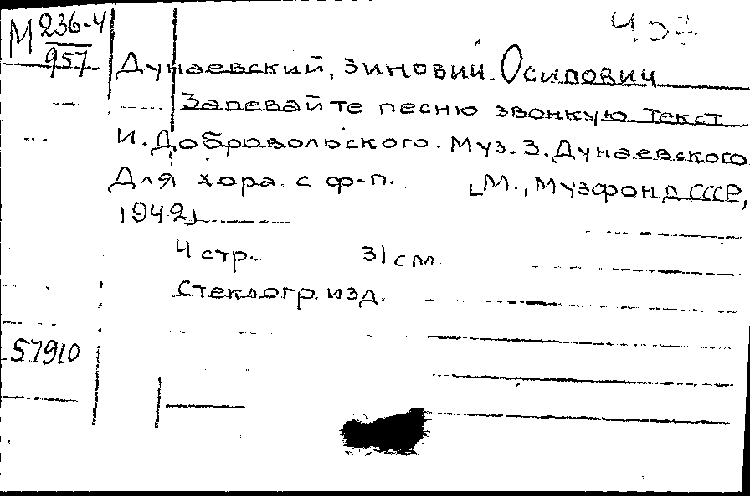 М 236-4
957
Дунаевский, Зиновий Осипович
Запевайте песню звонкую Текст
И. Добровольского. Муз. З. Дунаевского
Для хора с ф-п. [М., Музфонд СССР,
1942]
4 стр. 31 см.
Стеклогр. изд.
57910